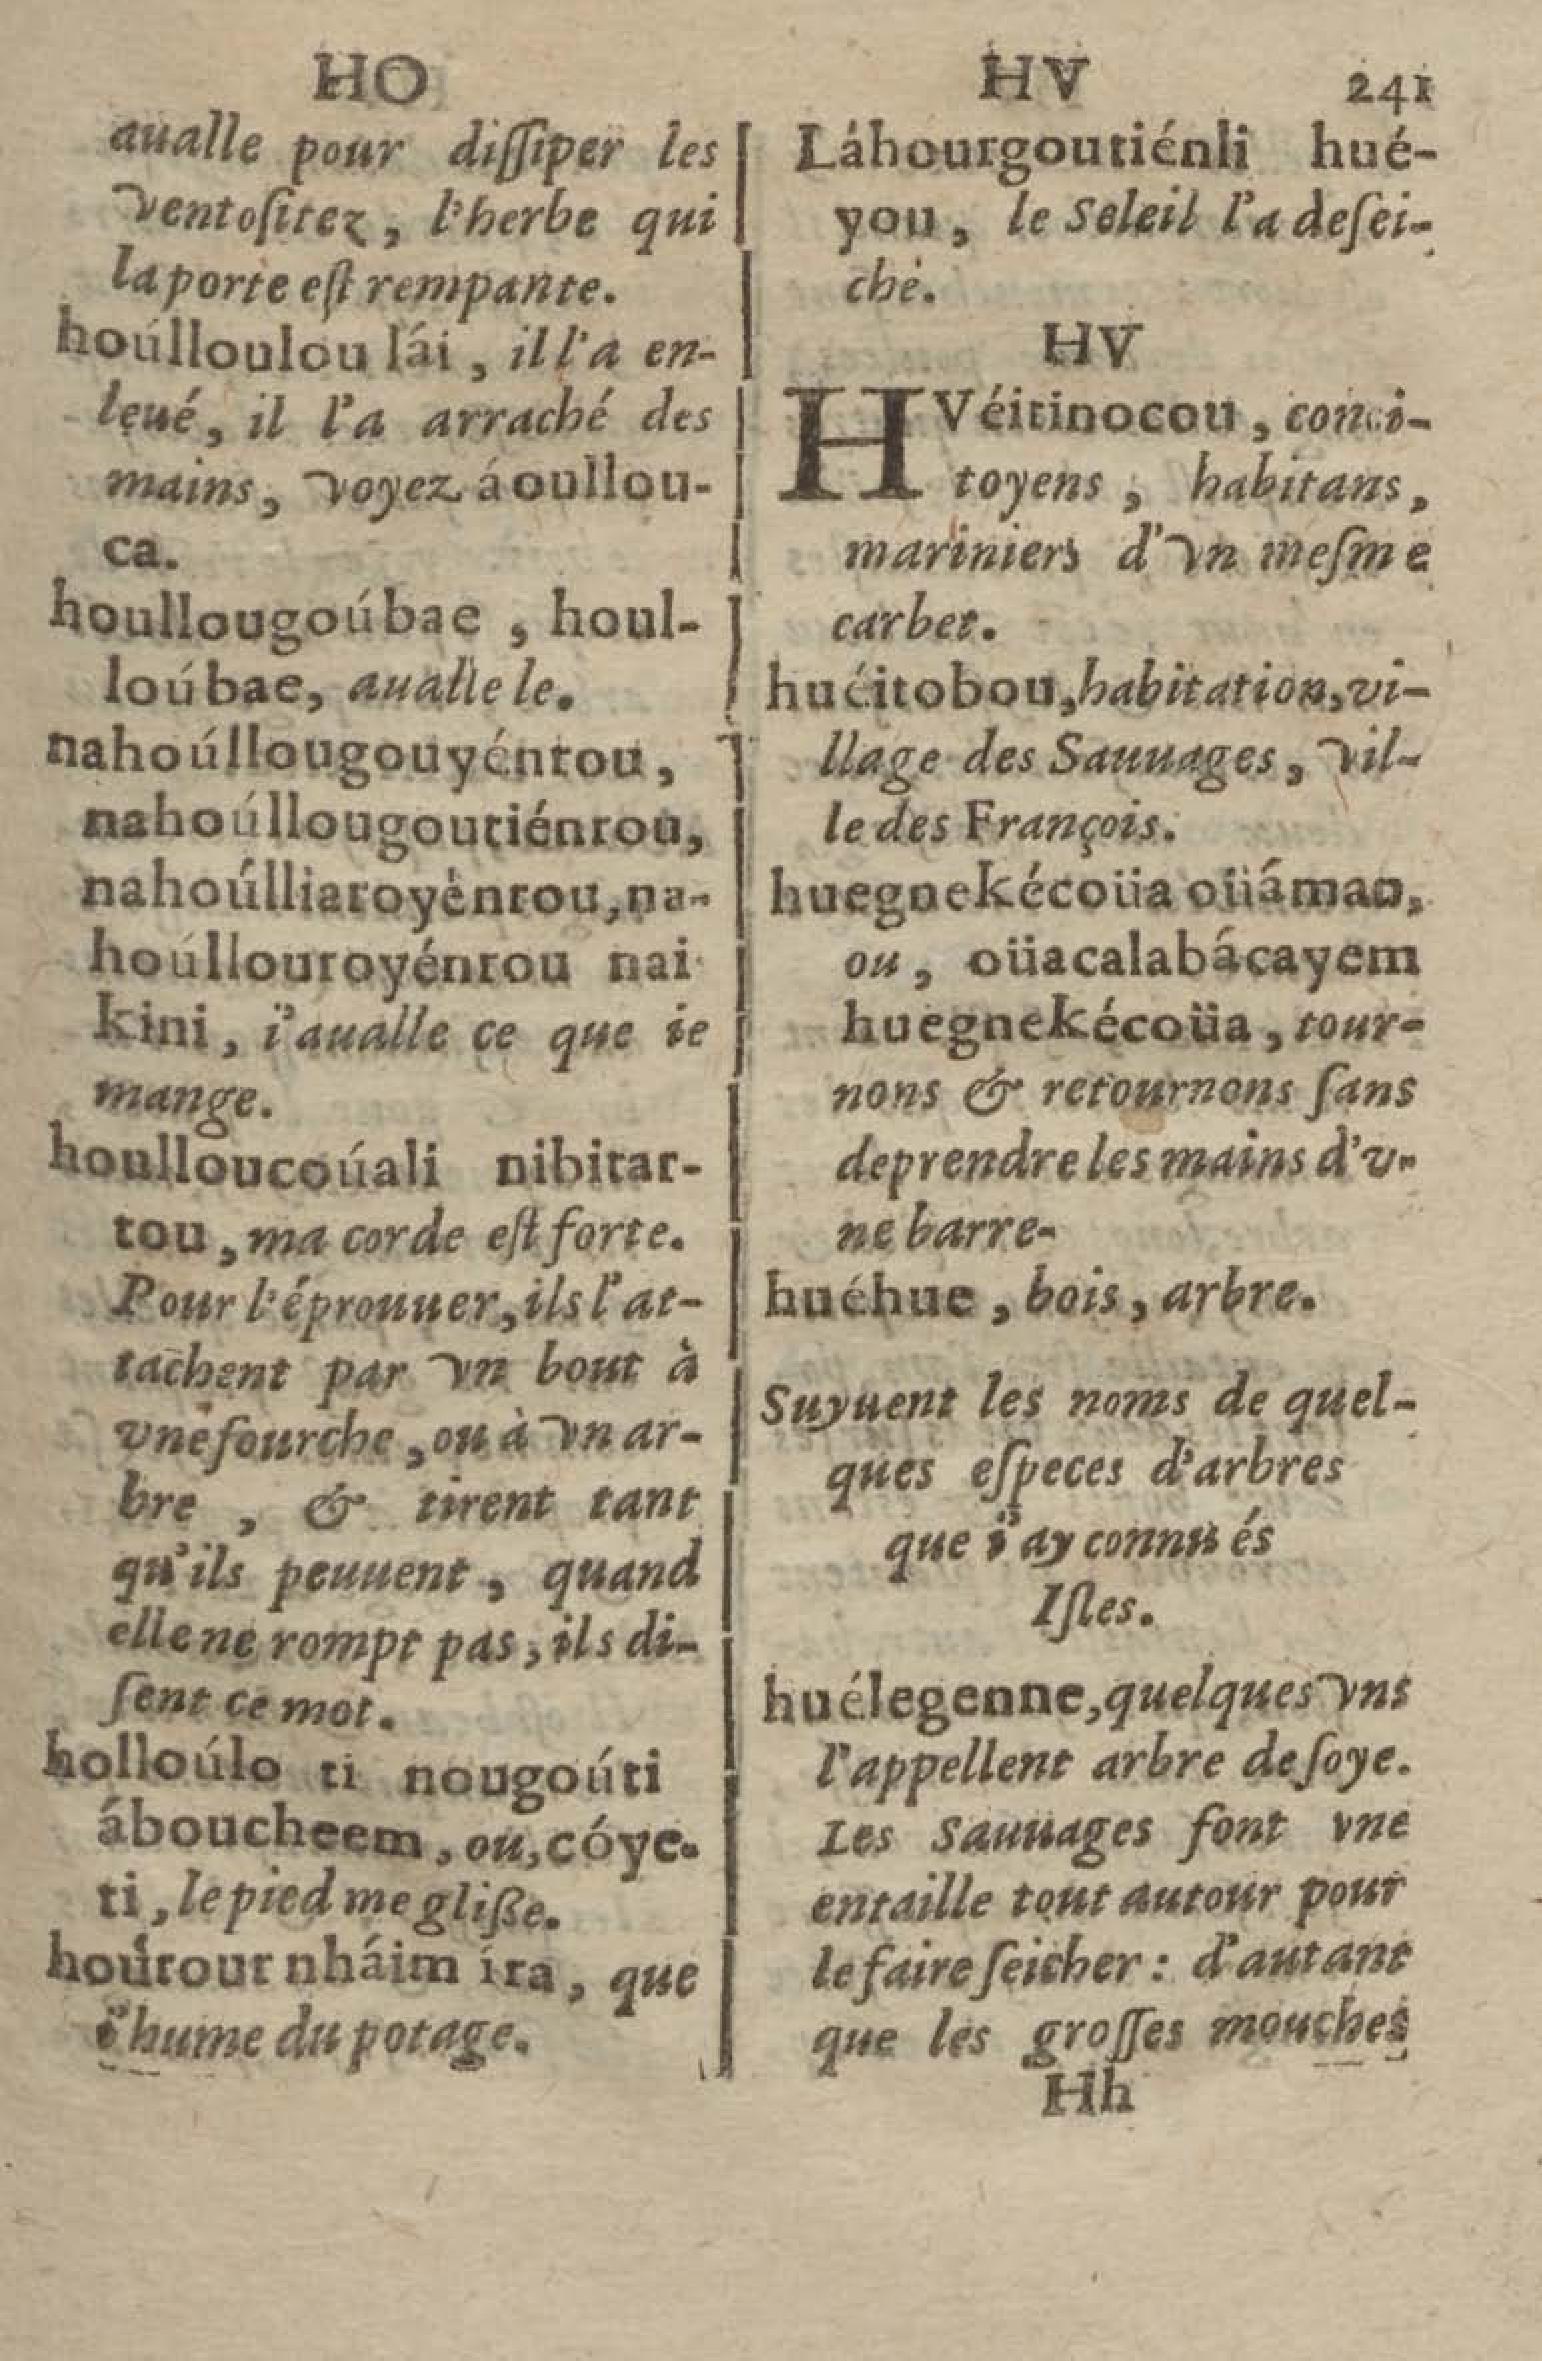 HO
aualle pour diſſiper les
ventoſitez, l'herbe qui
la porte eſt rempante.
hoúlloulou lái, il l'a en-
leué, il l'a arraché des
mains, voyez áoullou-
ca.
houllougoúbae, houl-
loúbae, aualle le.
nahoúllougouyéntou,
nahoúllougoutiéntou,
nahoúlliatoyéntou, na-
hoúllouroyéntou nai
kini, i'aualle ce que ie
mange.
houlloucoúali nibitar-
tou, ma corde eſt forte.
Pour l'éprouuer, ils l'at-
tachent par vn bout à
vne fourche, ou à vn ar-
bre, & tirent tant
qu'ils peuuent, quand
elle ne rompt pas, ils di-
ſent ce mot.
holloúlo ti nougoúti
áboucheem, ou, cóye-
ti, le pied me gliße.
hoúrour nháim íra, que
i'hume du potage.
HV 241
Láhourgoutiénli hué-
you, le Soleil l'a deſei-
ché.
HV
HVéitinocou, conci-
toyens, habitans,
mariniers d'vn meſme
carbet.
huéitobou, habitation, vi-
llage des Sauuages, vil-
le des François.
huegnekécoüa oüáman,
ou, oüacalabácayem
huegnekécoüa, tour-
nons & retournons ſans
deprendre les mains d'v-
ne barre.
huéhue, bois, arbre.
Suyuent les noms de quel-
ques eſpeces d'arbres
que i'ay connu és
Iſles.
huélegenne, quelques vns
l'appellent arbre de ſoye.
Les Sauuages font vne
entaille tout autour pour
le faire ſeicher: d'autant
que les groſſes mouches
Hh